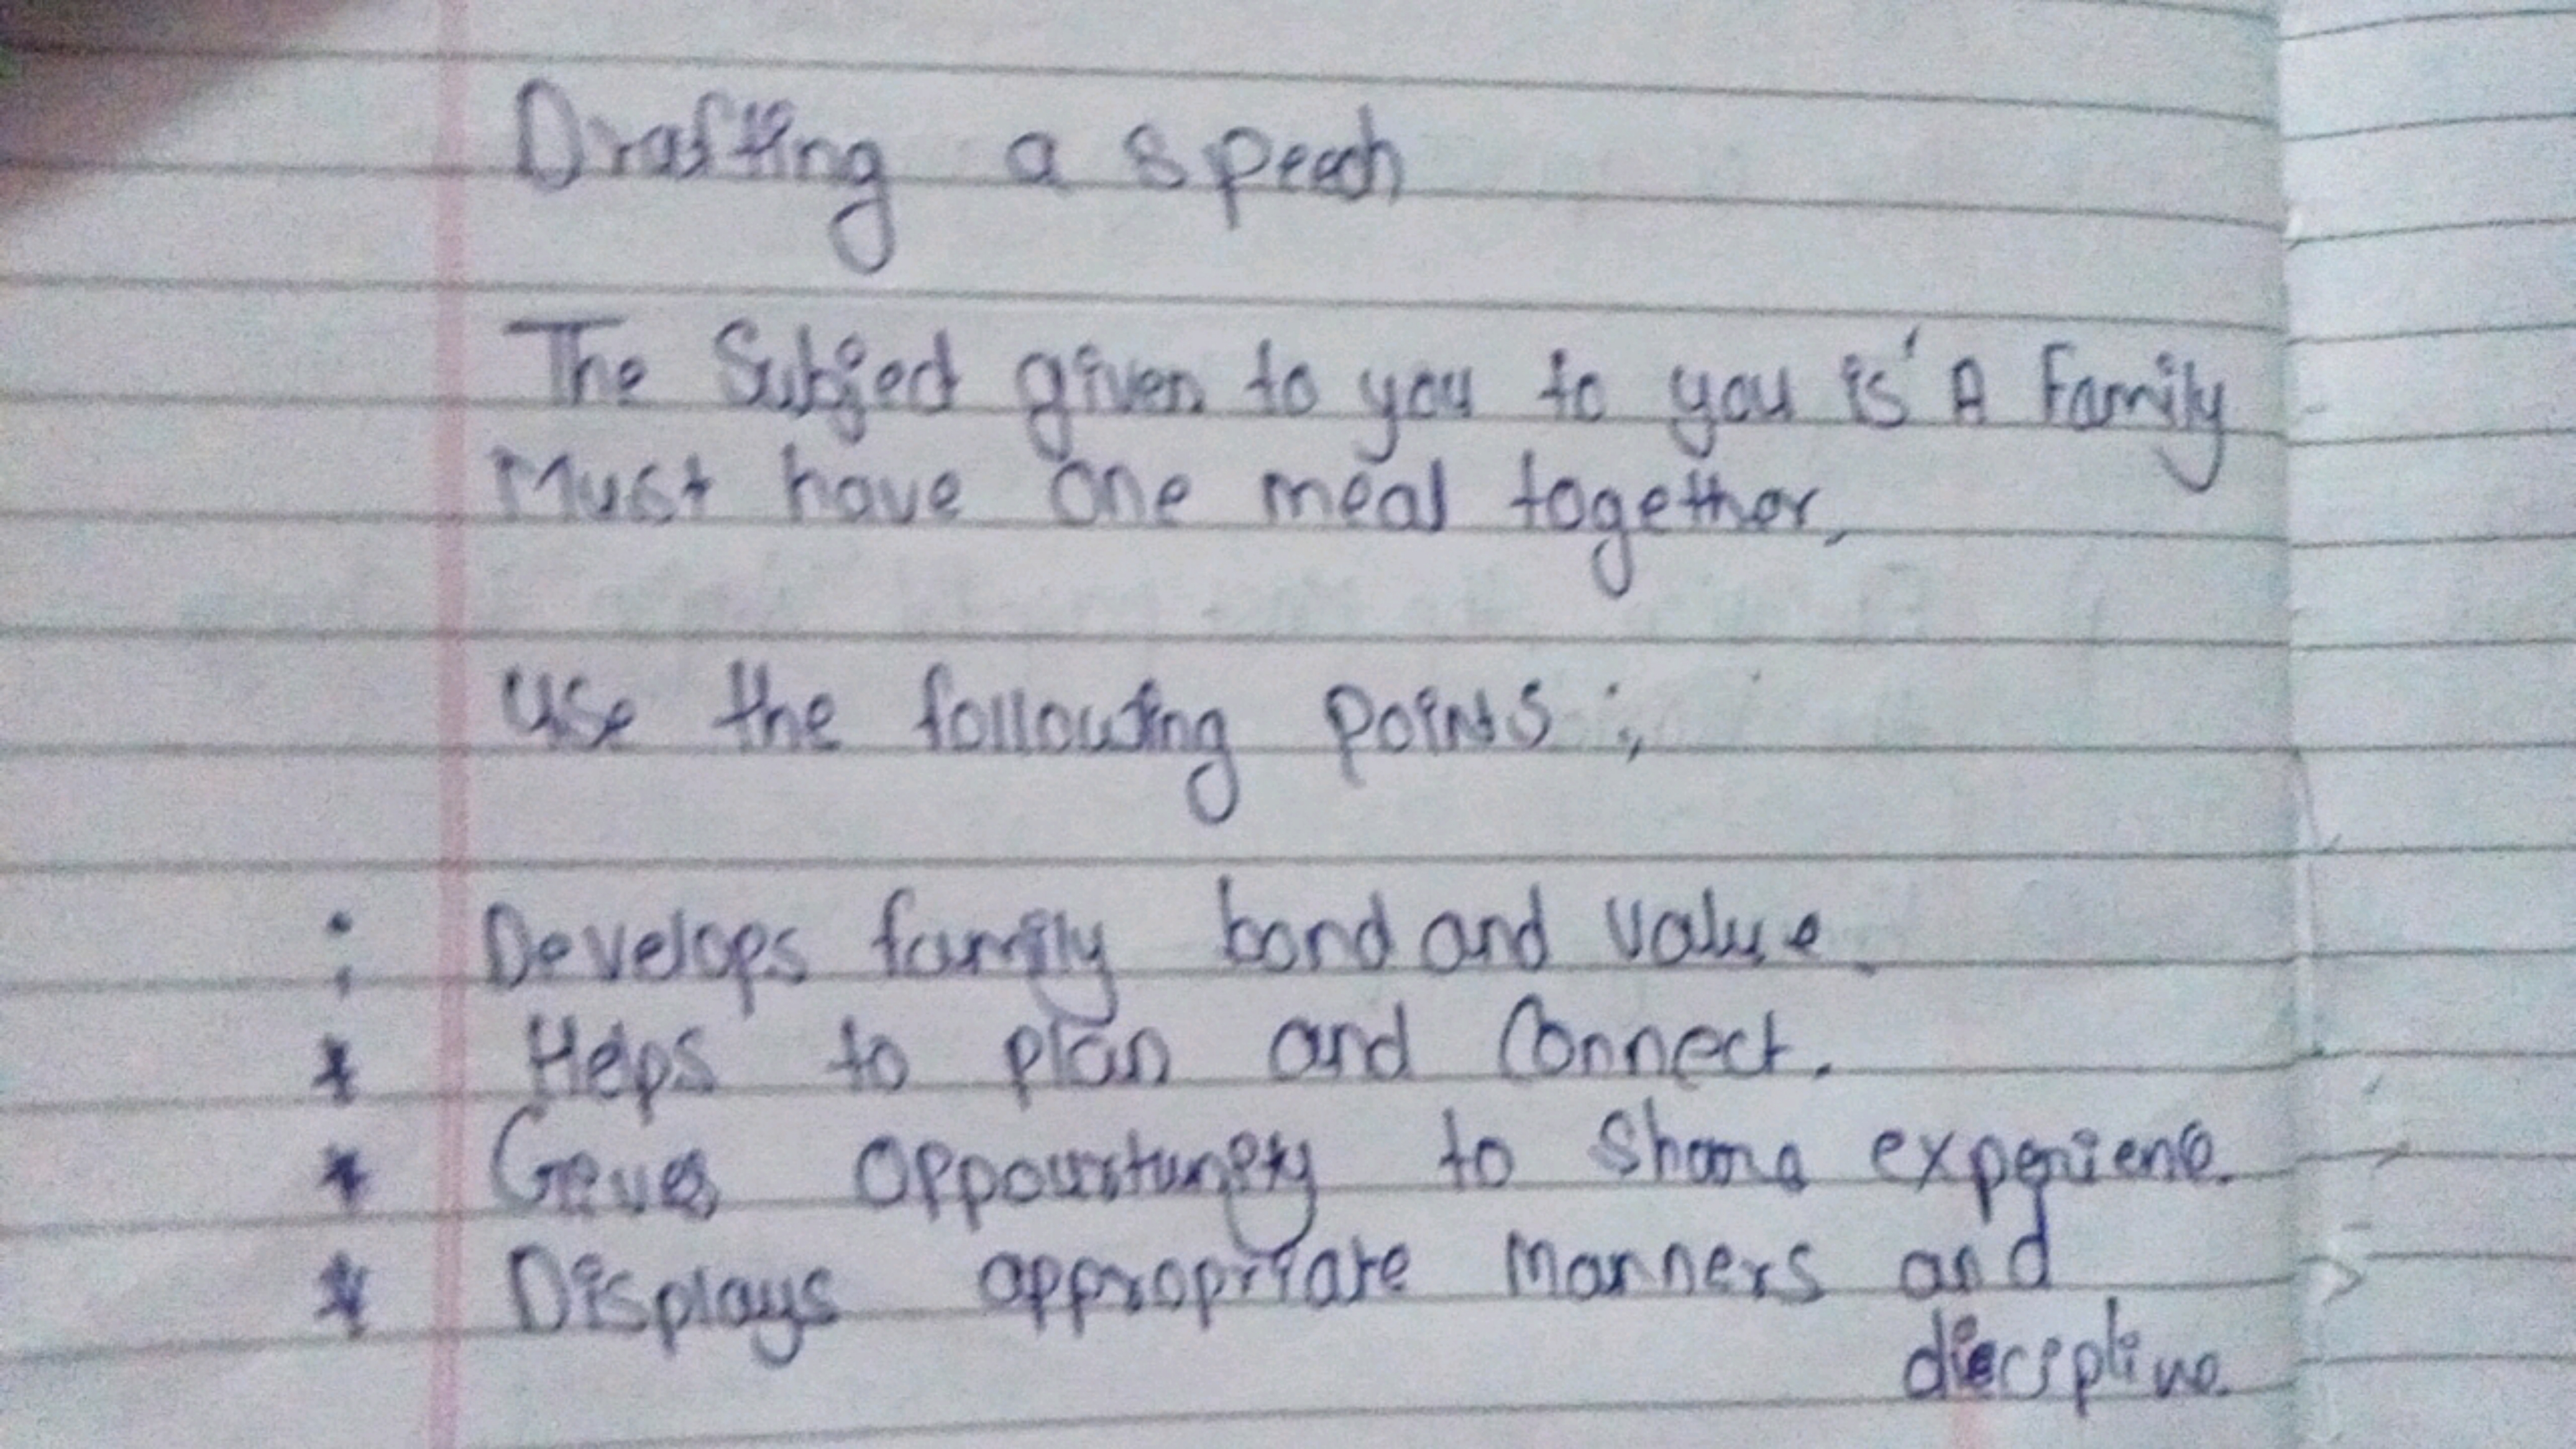 Drafting a speech
The Subject given to you to you is 'A Family
Must have one meal together.
Use the following points :,
Develops family bond and value.
* Helps to plan and Connect.
* Geves oppourtunety to Share experience.
* Displays appropriate manners and
discipline.